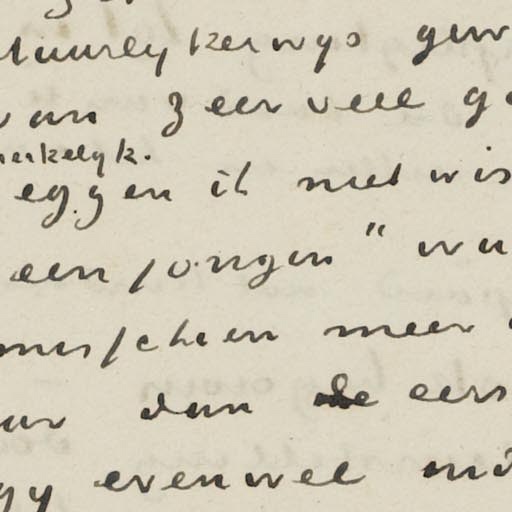 tuurlykerwys gew
van zeer veel g
merkelyk.
eggen ik niet wis
een jongen" wa
misschien meer
dan de eers
gy evenwel